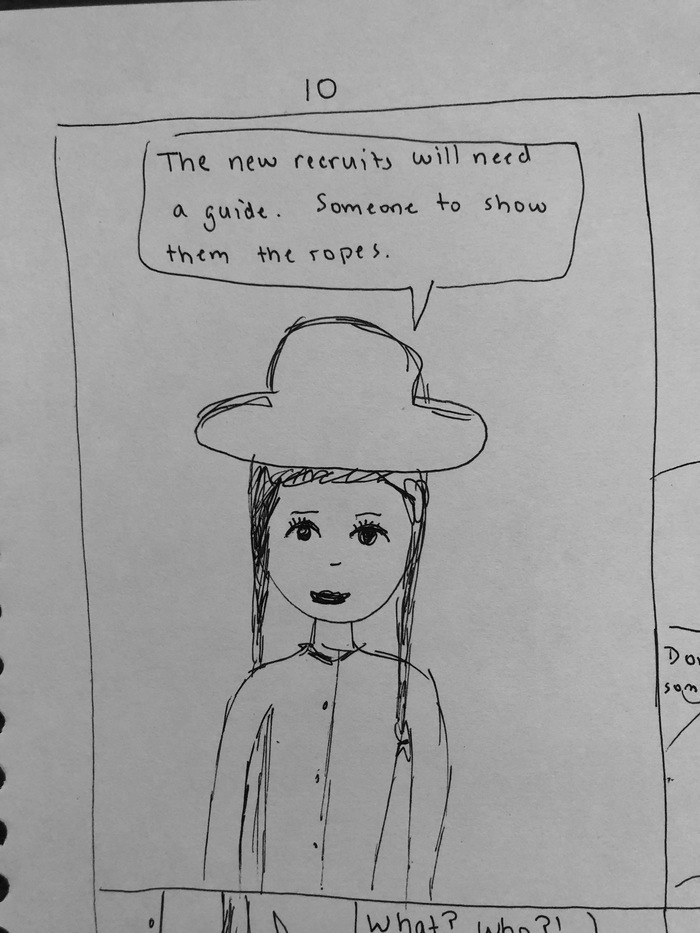 10
The new recruits will need
a guide. Someone to show
them the ropes.
What? Who?!